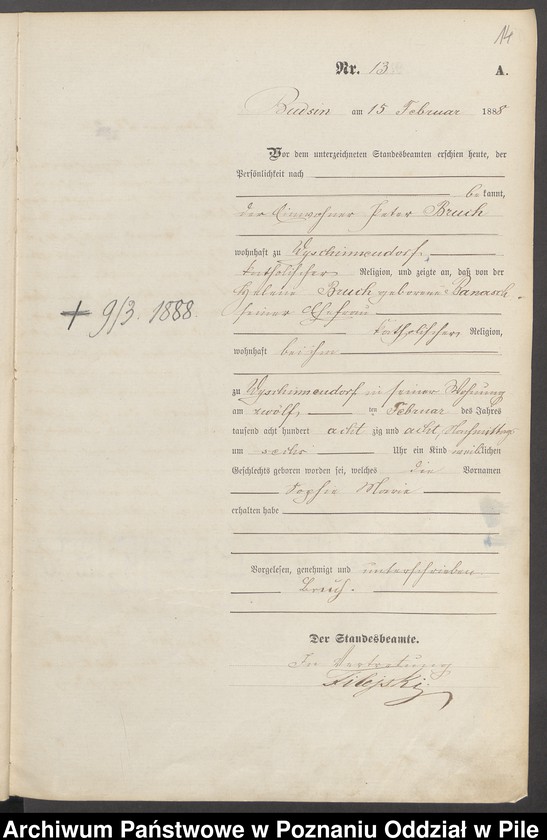 14
Nr. 13
A.
Budsin am 15 Februar 1888
Vor dem unterzeichneten Standesbeamten erschien heute, der
Persönlichkeit nach
bekannt,
der Einwohner Peter Bruch
wohnhaft zu Wyschinnendorf,
katholischer Religion, und zeigte an, daß von der
Helene Bruch geborene Banasch
seiner Ehefrau
katholischer Religion,
wohnhaft bei ihm
zu Wyschinnendorf in seiner Wohnung
am zwölf ten Februar des Jahres
tausend acht hundert acht zig und acht, Nachmittags
um sechs Uhr ein Kind weiblichen
Geschlechts geboren worden sei, welches die Vornamen
Sophie Marie
erhalten habe
Vorgelesen, genehmigt und unterschrieben
Bruch.
Der Standesbeamte.
In Vertretung
+ 9/3. 1888
Archiwum Państwowe w Poznaniu Oddział w Pile